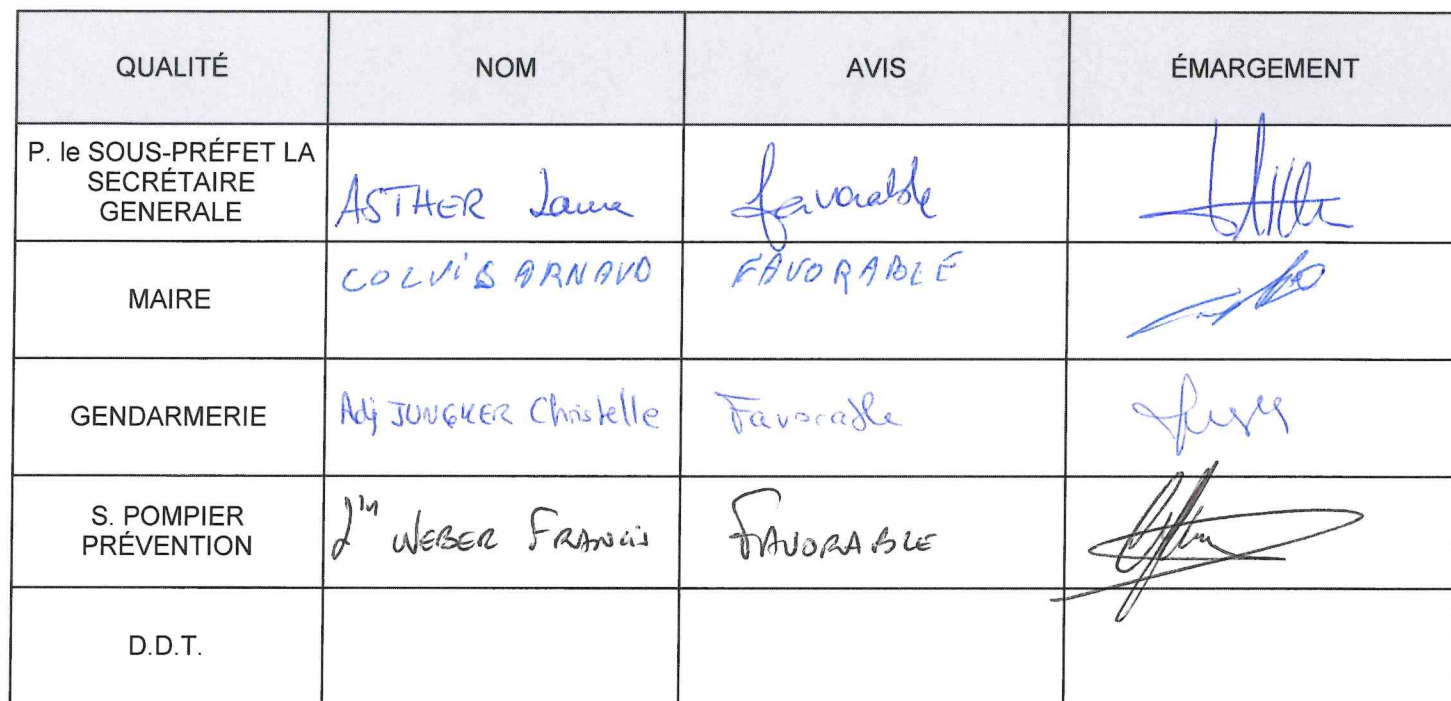 QUALITÉ NOM AVIS ÉMARGEMENT
P. le SOUS-PRÉFET LA
SECRÉTAIRE
GENERALE
ASTHER Laura favorable
MAIRE
COLVIS ARNAUD FAVORABLE
GENDARMERIE Adj JUNGKER Christelle Favorable
S. POMPIER
PRÉVENTION
WEBER FRANCIS FAVORABLE
D.D.T.